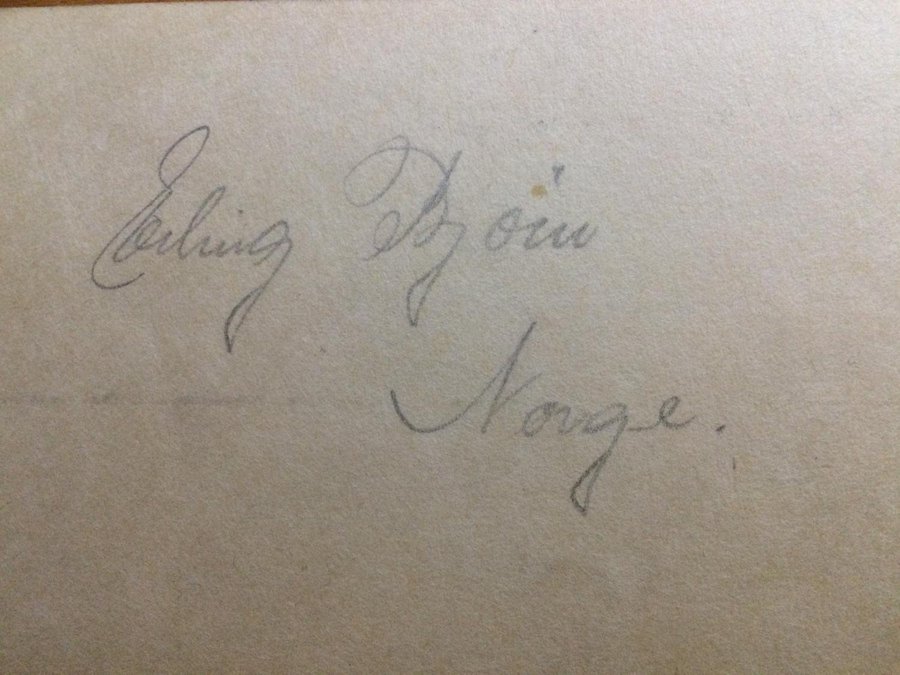 Erling Bjöin
Norge.